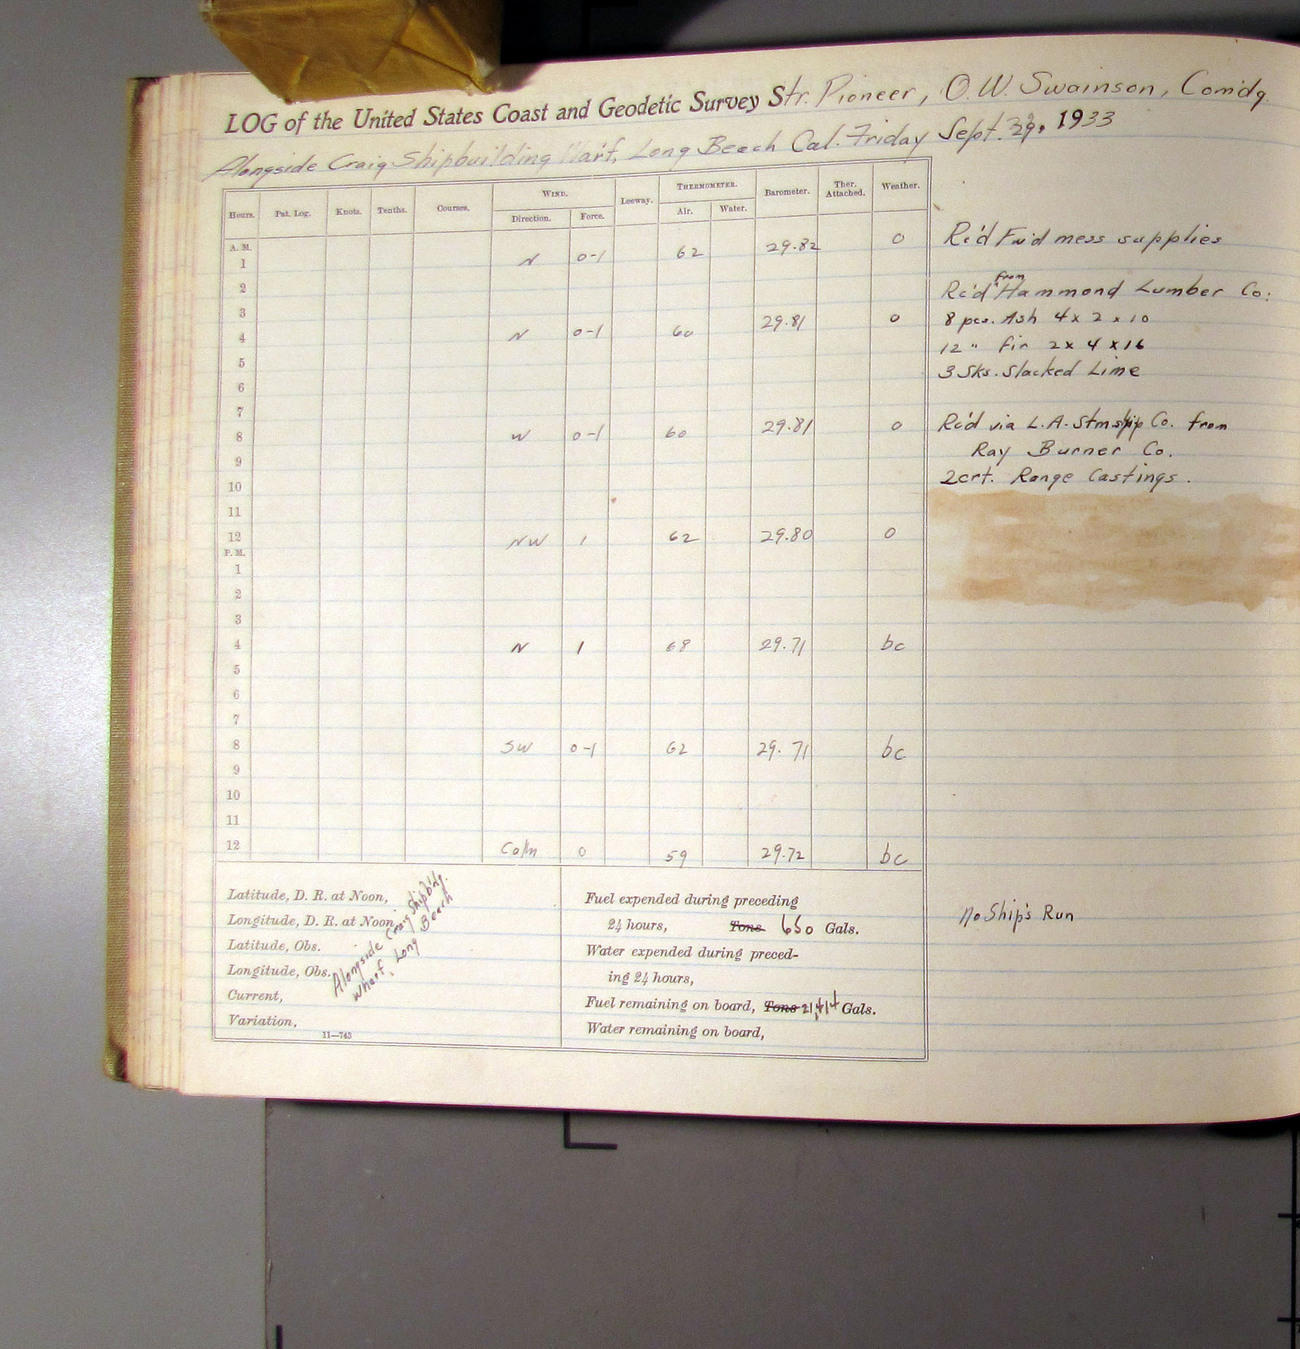 LOG of the United States Coast and Geodetic Survey Str. Pioneer, O. W. Swainson, Com'dg.
Alongside Craig Shipbuilding Warf, Long Beach Cal. Friday Sept. 29, 1933
Hours. Pat. Log. Knots. Tenths. Courses. WIND. Leeway. THERMOMETER. Barometer. Ther. Attached. Weather.
Direction. Force. Air. Water.
A. M.
1 N 0-1 62 29.82 o Rc'd Fw'd mess supplies
2 Rc'd from Hammond Lumber Co:
3 8 pcs. Ash 4 x 2 x 10
4 N 0-1 60 29.81 o 12 " fir 2 x 4 x 16
5 3 Sks. Slacked Lime
6
7
8 W 0-1 60 29.81 o Rc'd via L.A. Stmship Co. from
9 Ray Burner Co.
10 2 crt. Range Castings.
11
12 NW 1 62 29.80 o
P. M.
1
2
3
4 N 1 68 29.71 bc
5
6
7
8 SW 0-1 62 29.71 bc
9
10
11
12 Calm 0 59 29.72 bc
Latitude, D. R. at Noon,
Longitude, D. R. at Noon,
Latitude, Obs.
Longitude, Obs.
Current,
Variation,
11—743
Alongside Craig Shipbldg.
Wharf, Long Beach
Fuel expended during preceding
24 hours, Tons 650 Gals.
Water expended during preced-
ing 24 hours,
Fuel remaining on board, Tons Gals.
Water remaining on board,
No Ship's Run